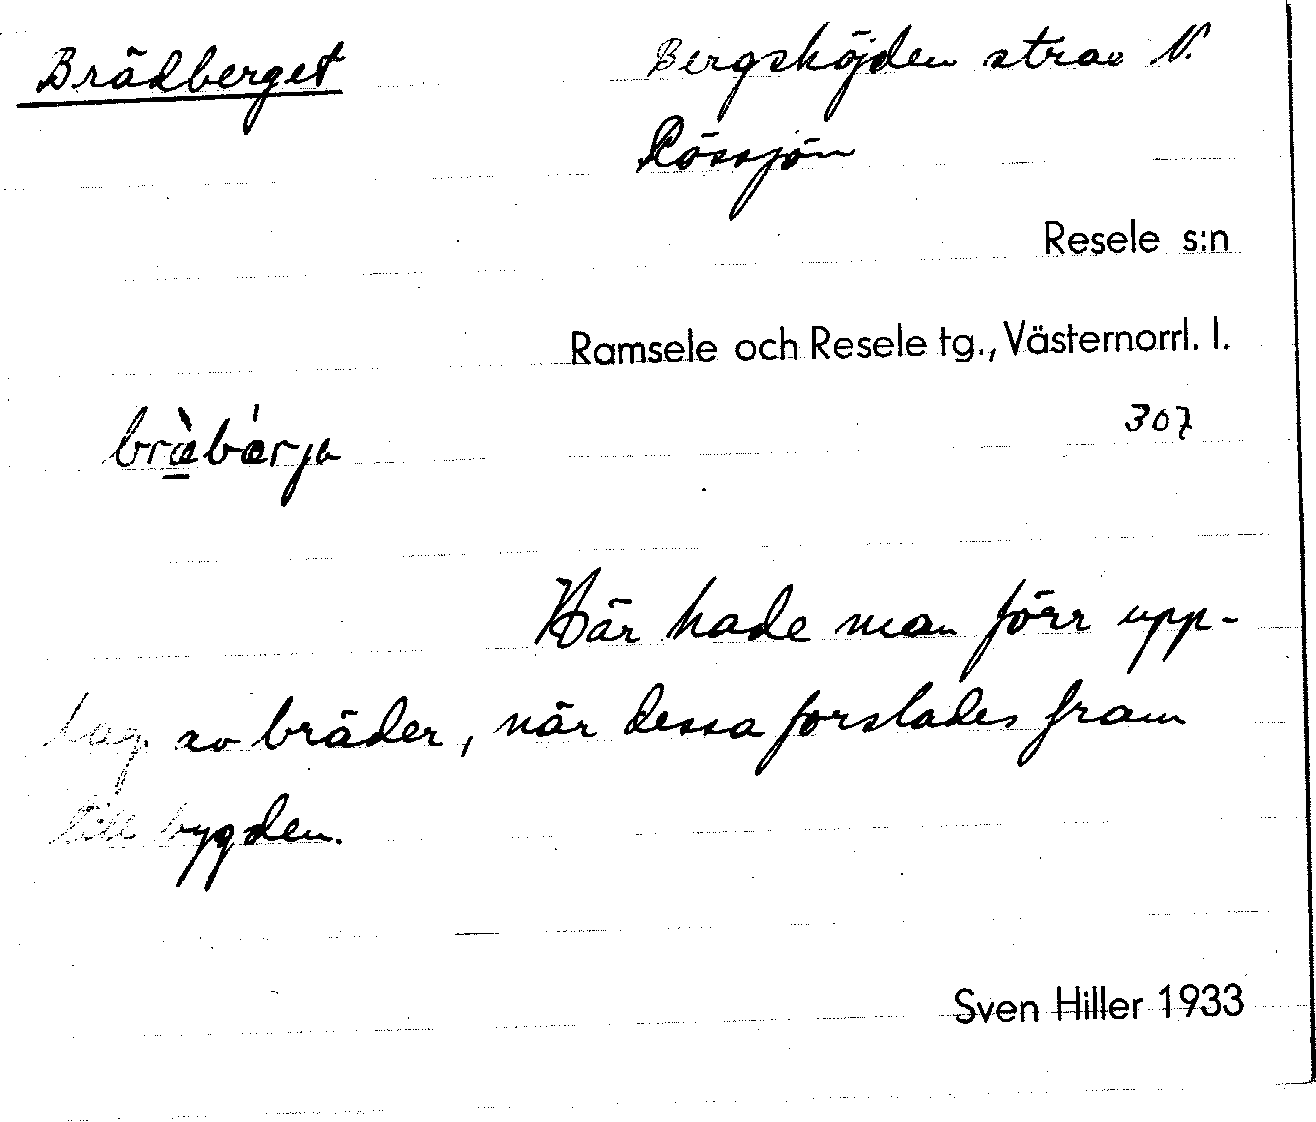 Brädberget
Bergshöjden strax N.
Rössjön
Resele s:n
Ramsele och Resele tg., Västernorrl. l.
307
Här hade man förr upp-
lag av bräder, när dessa forslades fram
till bygden.
Sven Hiller 1933